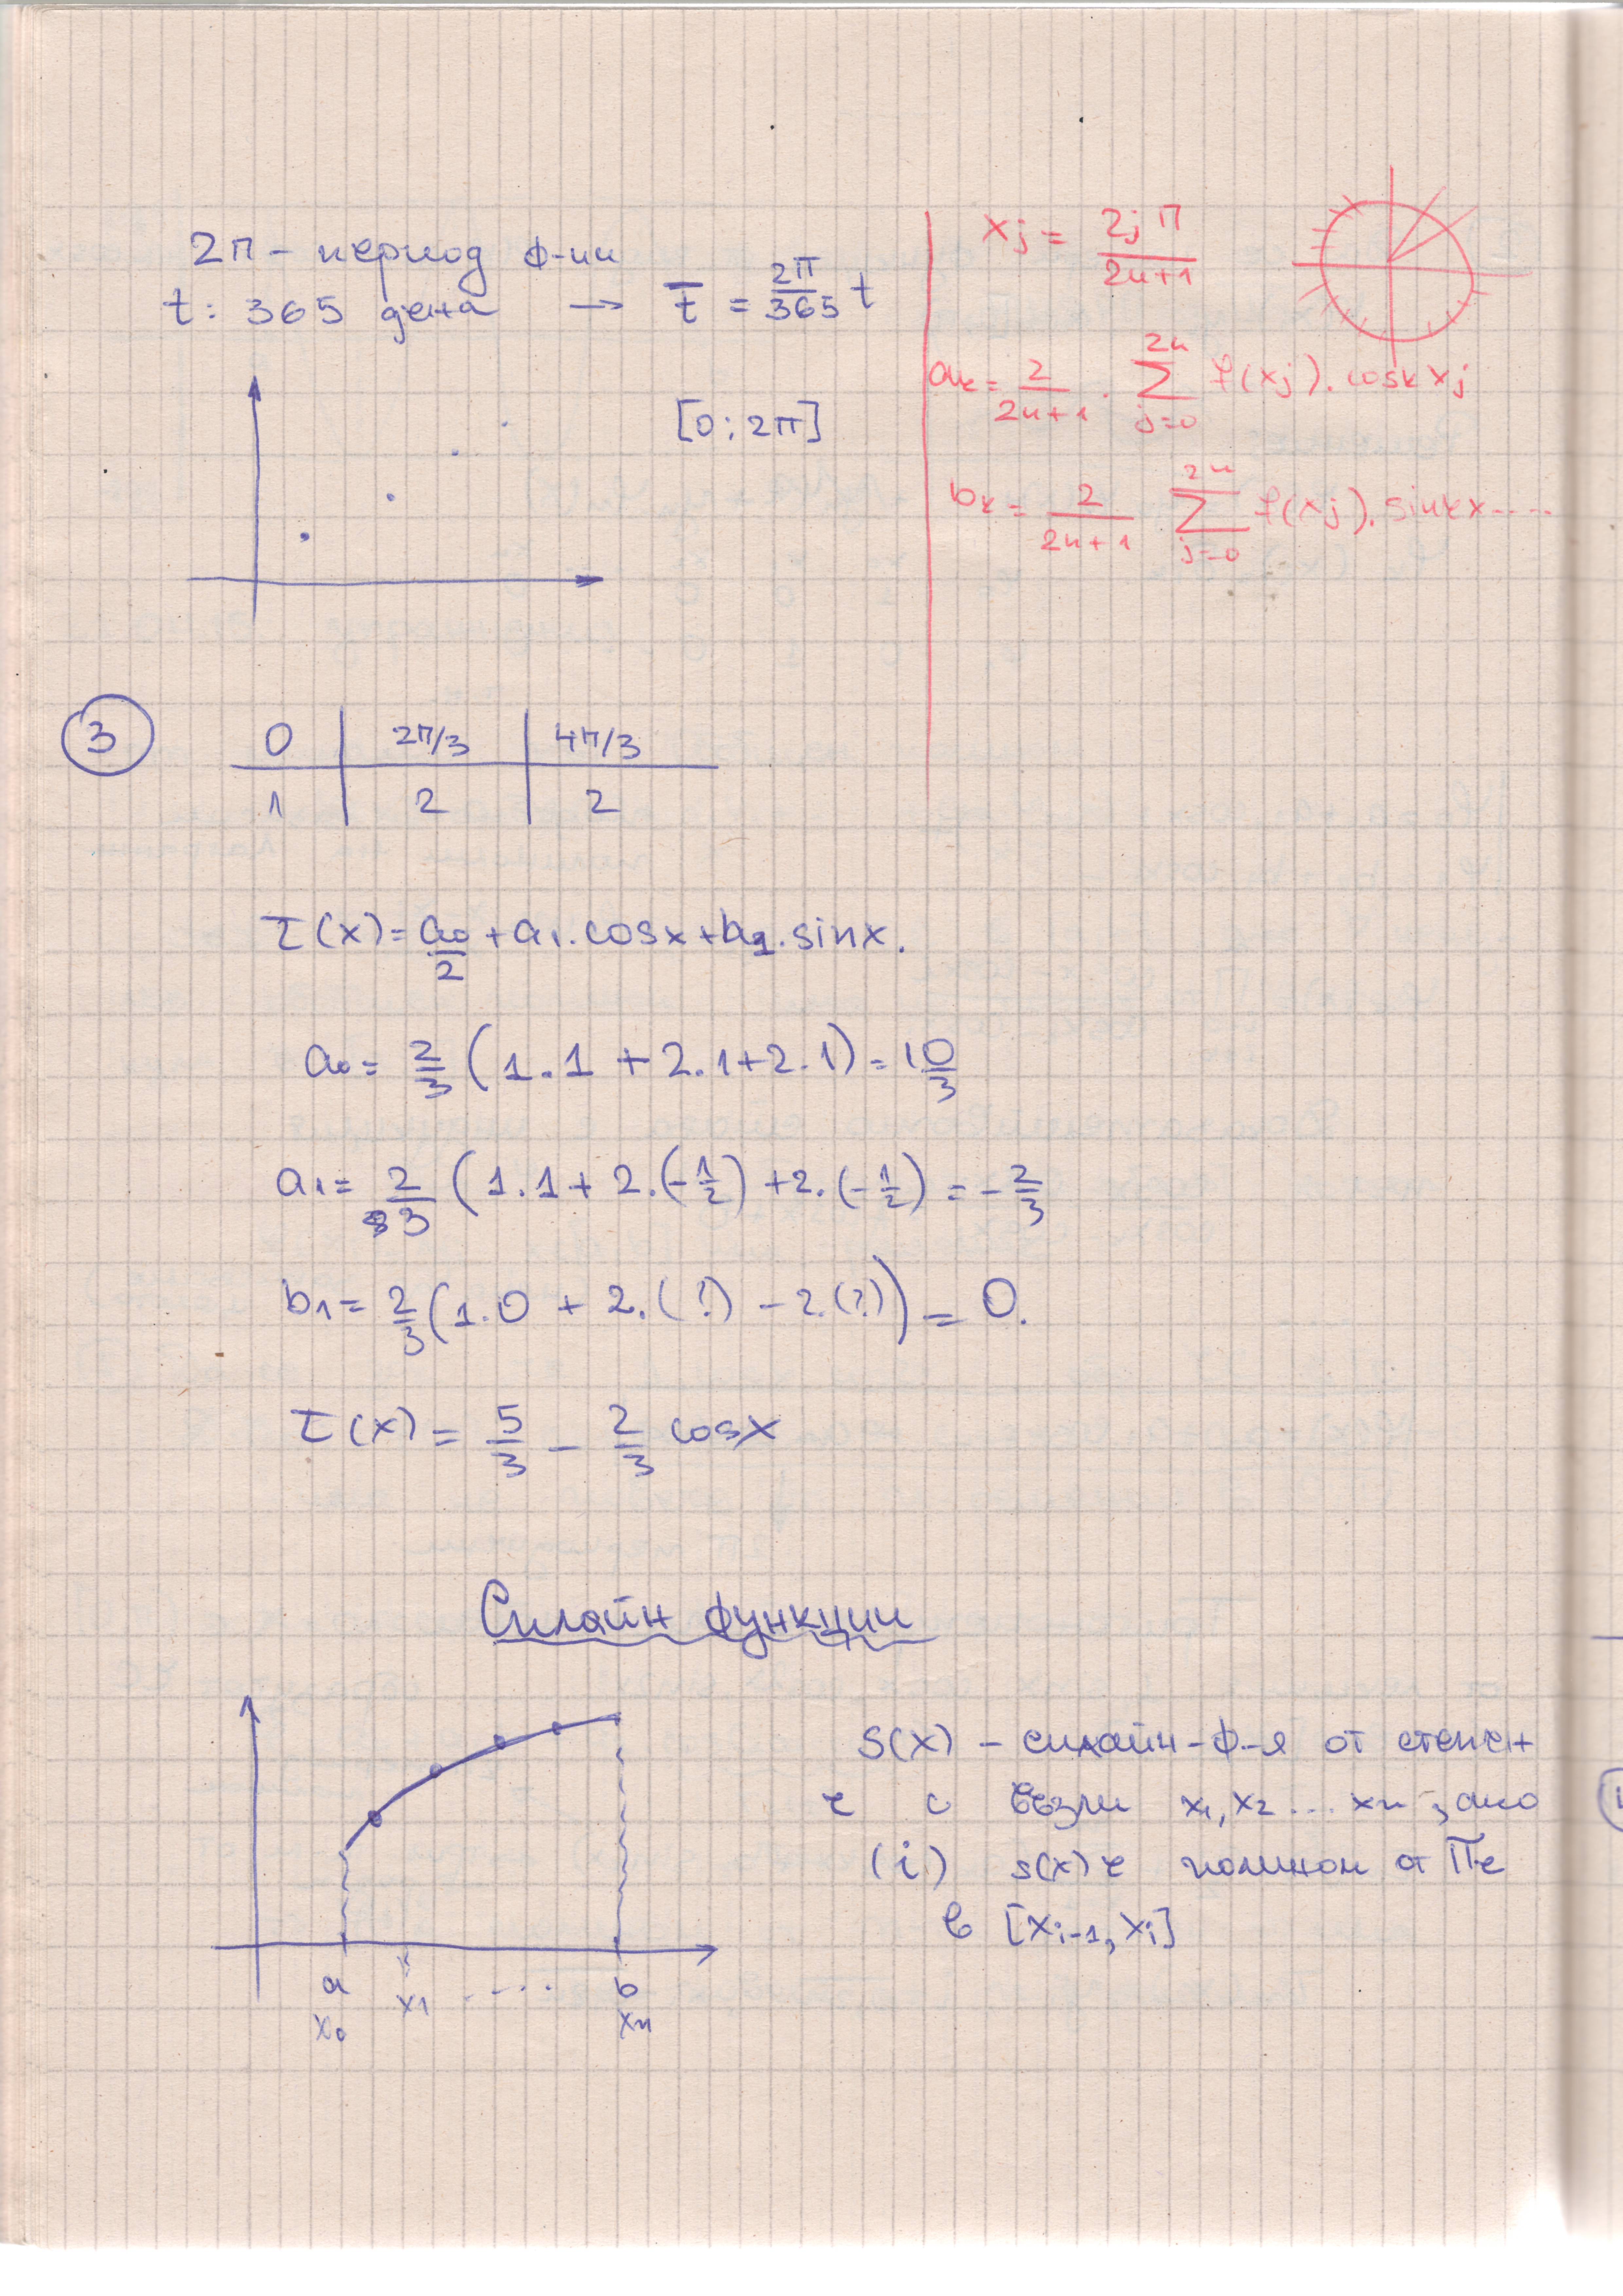 2π - период ф-ии
t: 365 дена → t̅ = 2π/365 t
[0; 2π]
xj = 2jπ/2n+1
ak = 2/2n+1 . ∑_{j=0}^{2n} f(xj). cosk xj
bk = 2/2n+1 ∑_{j=0}^{2n} f(xj). sinkx....
3
0 | 2π/3 | 4π/3
1 | 2 | 2
τ(x) = a0/2 + a1.cosx + b1.sinx.
a0 = 2/3 (1.1 + 2.1 + 2.1) = 10/3
a1 = 2/3 (1.1 + 2.(-1/2) + 2.(-1/2)) = -2/3
b1 = 2/3 (1.0 + 2.(?) - 2.(?)) = 0.
τ(x) = 5/3 - 2/3 cosx
Сплайн функции
S(x) - сплайн-ф-я от степен
r с възли x1, x2 ... xn, ако
(i) s(x) е полином от πr
в [xi-1, xi]
a x1 .... b
x0 xn